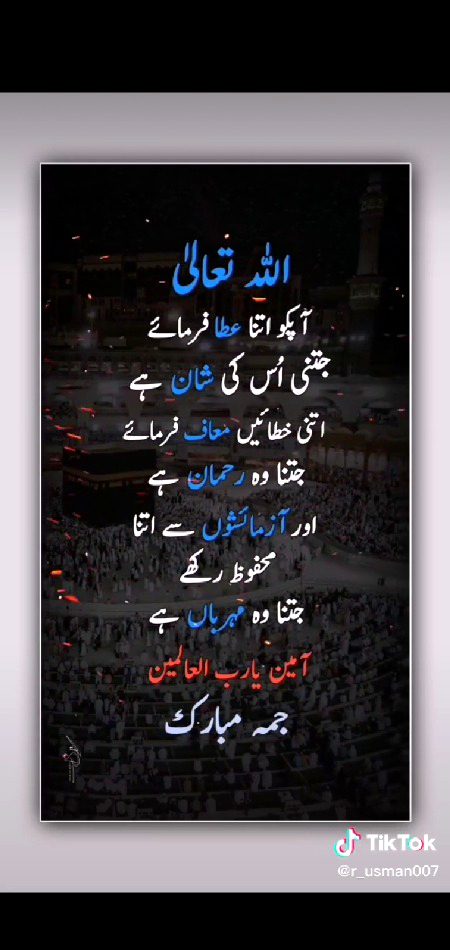 اللہ تعالیٰ
آپکو اتنا عطا فرمائے
جتنی اُس کی شان ہے
اتنی خطائیں معاف فرمائے
جتنا وہ رحمان ہے
اور آزمائشوں سے اتنا
محفوظ رکھے
جتنا وہ مہرباں ہے
آمین یارب العالمین
جمہ مبارک
TikTok
@r_usman007